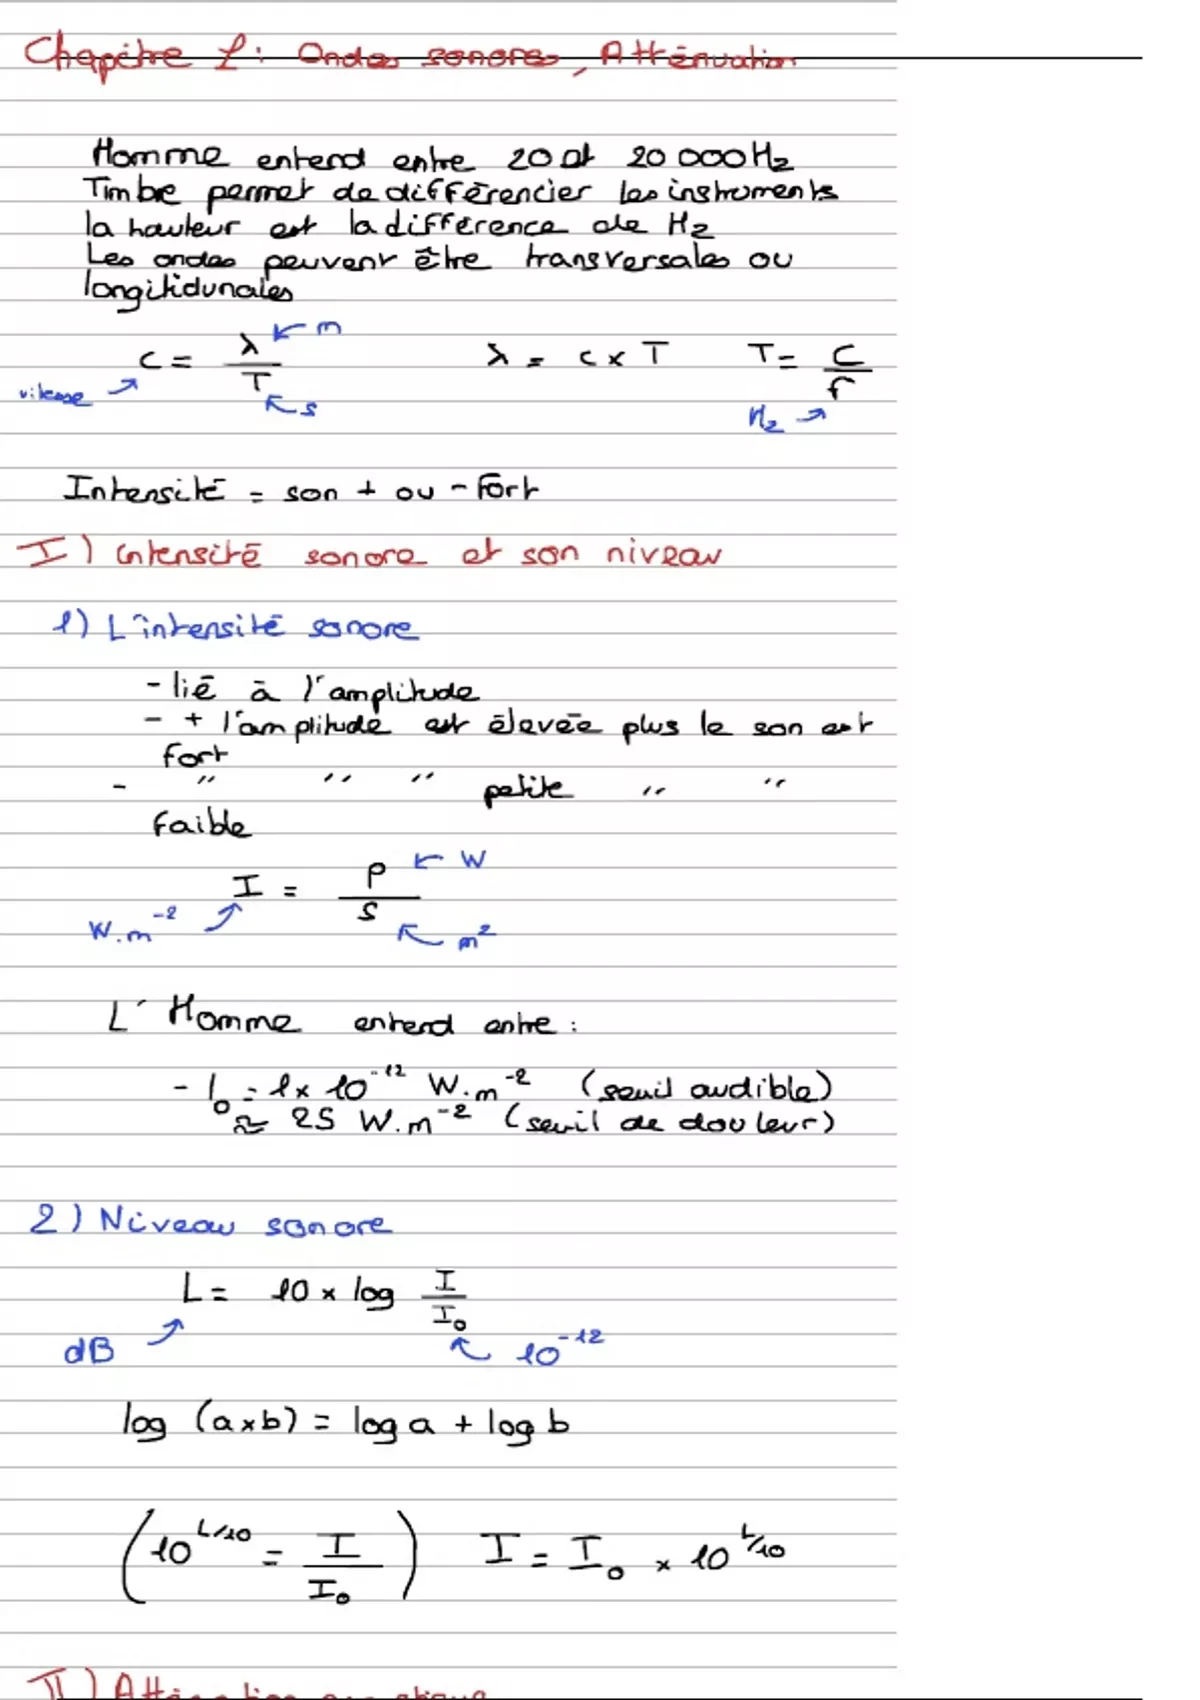 Chapitre 1: Ondes sonores, Atténuation
Homme entend entre 20 et 20 000 Hz
Timbre permet de différencier les instruments
la hauteur est la différence de Hz
Les ondes peuvent être transversales ou
longitidunales
c = λ/T ← m λ = c × T T = c/f
vitesse ↗ ↖ s Hz ↗
Intensité = son + ou - fort
I) intensité sonore et son niveau
1) L'intensité sonore
- lié à l'amplitude
- + l'amplitude est élevée plus le son est
fort
- " " " petite " "
faible
I = P/S ← W
W.m⁻² ↗ ↖ m²
L'Homme entend entre :
- I₀ = 1 × 10⁻¹² W.m⁻² (seuil audible)
≈ 25 W.m⁻² (seuil de douleur)
2) Niveau sonore
L = 10 × log I/I₀
dB ↗ ↖ 10⁻¹²
log (a×b) = log a + log b
(10^L/10 = I/I₀) I = I₀ × 10^L/10
II) Atténuation